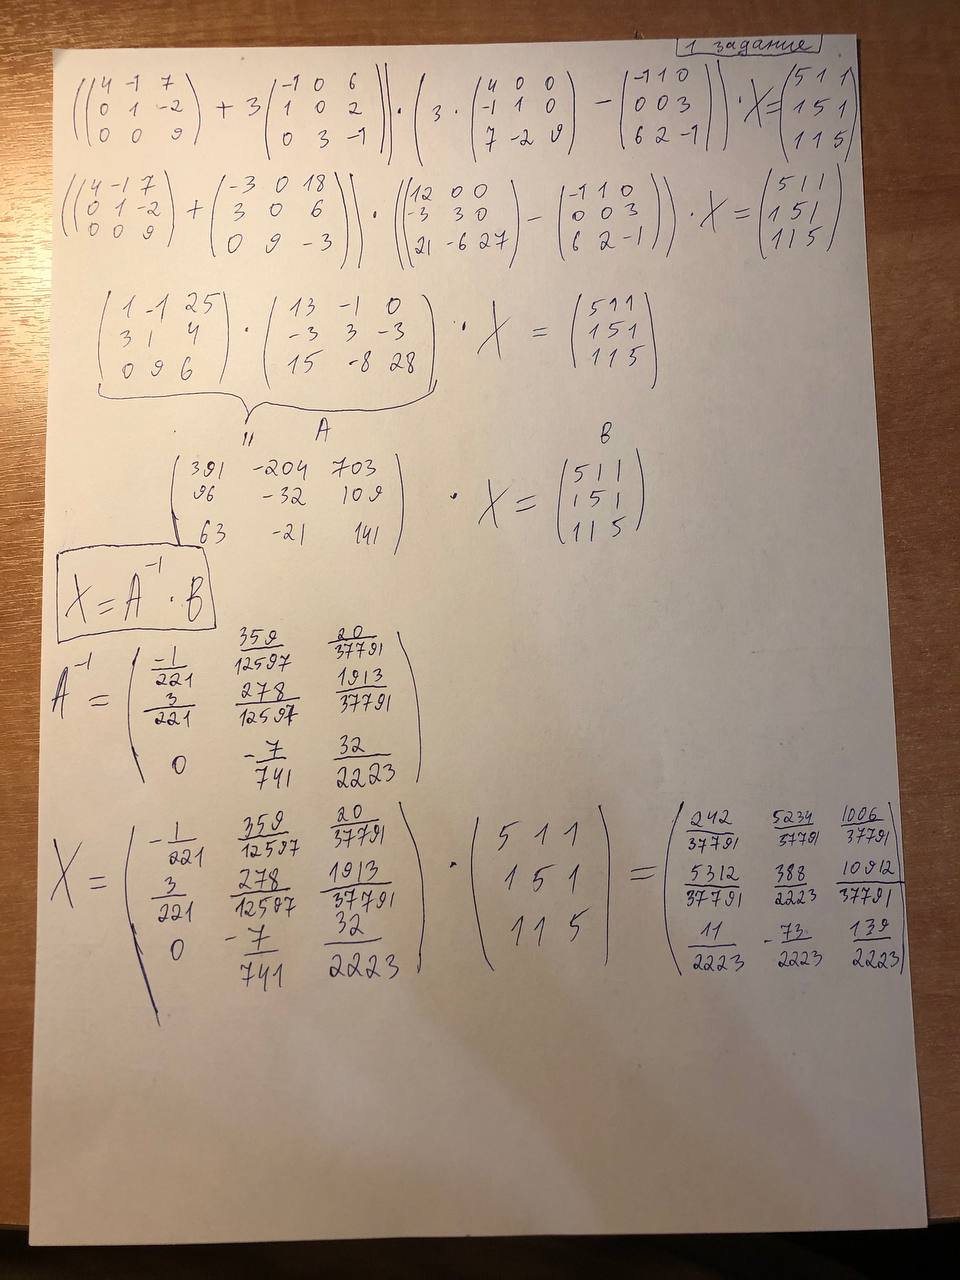 1 задание
((4 -1 7; 0 1 -2; 0 0 9) + 3(-1 0 6; 1 0 2; 0 3 -1)) · (3 · (4 0 0; -1 1 0; 7 -2 9) - (-1 1 0; 0 0 3; 6 2 -1)) · X = (5 1 1; 1 5 1; 1 1 5)
((4 -1 7; 0 1 -2; 0 0 9) + (-3 0 18; 3 0 6; 0 9 -3)) · ((12 0 0; -3 3 0; 21 -6 27) - (-1 1 0; 0 0 3; 6 2 -1)) · X = (5 1 1; 1 5 1; 1 1 5)
(1 -1 25; 3 1 4; 0 9 6) · (13 -1 0; -3 3 -3; 15 -8 28) · X = (5 1 1; 1 5 1; 1 1 5)
" A B
(391 -204 703; 96 -32 109; 63 -21 141) · X = (5 1 1; 1 5 1; 1 1 5)
X = A^-1 · B
A^-1 = (-1/221 359/12597 20/37791; 3/221 278/12597 1913/37791; 0 -7/741 32/2223)
X = (-1/221 359/12597 20/37791; 3/221 278/12597 1913/37791; 0 -7/741 32/2223) · (5 1 1; 1 5 1; 1 1 5) = (242/37791 5234/37791 1006/37791; 5312/37791 388/2223 10912/37791; 11/2223 -73/2223 139/2223)